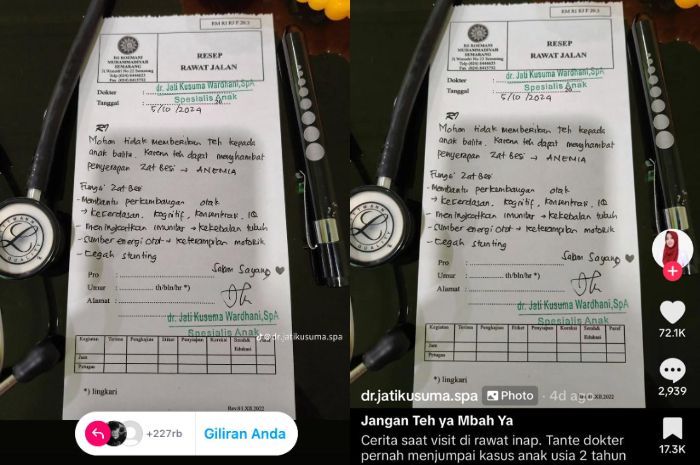 RM RI RJ P 20.3
RS ROEMANI
MUHAMMADIYAH
SEMARANG
RESEP
RAWAT JALAN
Dokter :
dr. Jati Kusuma Wardhani,SpA
Spesialis Anak
Tanggal : 5/10/2024 20
R/
Mohon tidak memberikan teh kepada
anak balita. Karena teh dapat menghambat
penyerapan Zat Besi → ANEMIA
Fungsi Zat Besi
- Membantu perkembangan otak
→ kecerdasan, kognitif, konsentrasi, IQ
- meningkatkan imunitas → kekebalan tubuh
- sumber energi otot → keterampilan motorik
- cegah stunting
Salam Sayang
Pro :
Umur : th/bln/hr *)
Alamat :
dr. Jati Kusuma Wardhani,SpA
Spesialis Anak
Kegiatan Terima Pengkajian Etiket Penyiapan Koreksi Serah& Edukasi
Jam
Petugas
*) lingkari
Rev.01.XII.2022
dr.jatikusuma.spa
+227rb
Giliran Anda
RS ROEMANI
MUHAMMADIYAH
SEMARANG
RESEP
RAWAT JALAN
Dokter :
dr. Jati Kusuma Wardhani,SpA
Spesialis Anak
Tanggal : 5/10/2024 20
R/
Mohon tidak memberikan teh kepada
anak balita. Karena teh dapat menghambat
penyerapan Zat Besi → ANEMIA
Fungsi Zat Besi
- Membantu perkembangan otak
→ kecerdasan, kognitif, konsentrasi, IQ
- meningkatkan imunitas → kekebalan tubuh
- sumber energi otot → keterampilan motorik
- cegah stunting
Salam Sayang
Pro :
Umur : th/bln/hr *)
Alamat :
dr. Jati Kusuma Wardhani,SpA
Spesialis Anak
Kegiatan Terima Pengkajian Etiket Penyiapan Koreksi Serah& Edukasi Paraf
Jam
Petugas
*) lingkari
Rev.01.XII.2022
72.1K
2,939
17.3K
dr.jatikusuma.spa Photo · 4d ago
Jangan Teh ya Mbah Ya
Cerita saat visit di rawat inap. Tante dokter
pernah menjumpai kasus anak usia 2 tahun